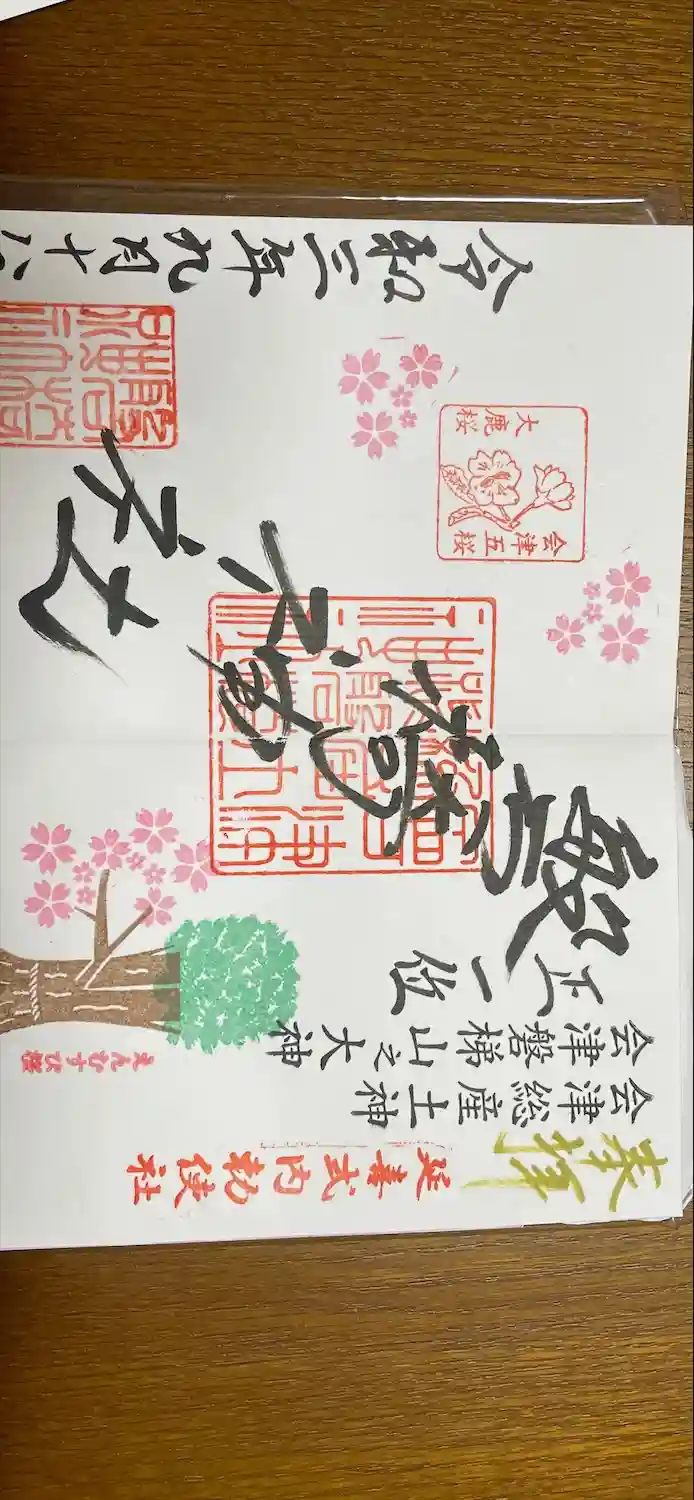 奉拝
延喜式内勅使社
会津総産土神
会津磐梯山之大神
正一位
磐椅神社
えんむすび桜
会津五桜
大鹿桜
令和三年九月十八